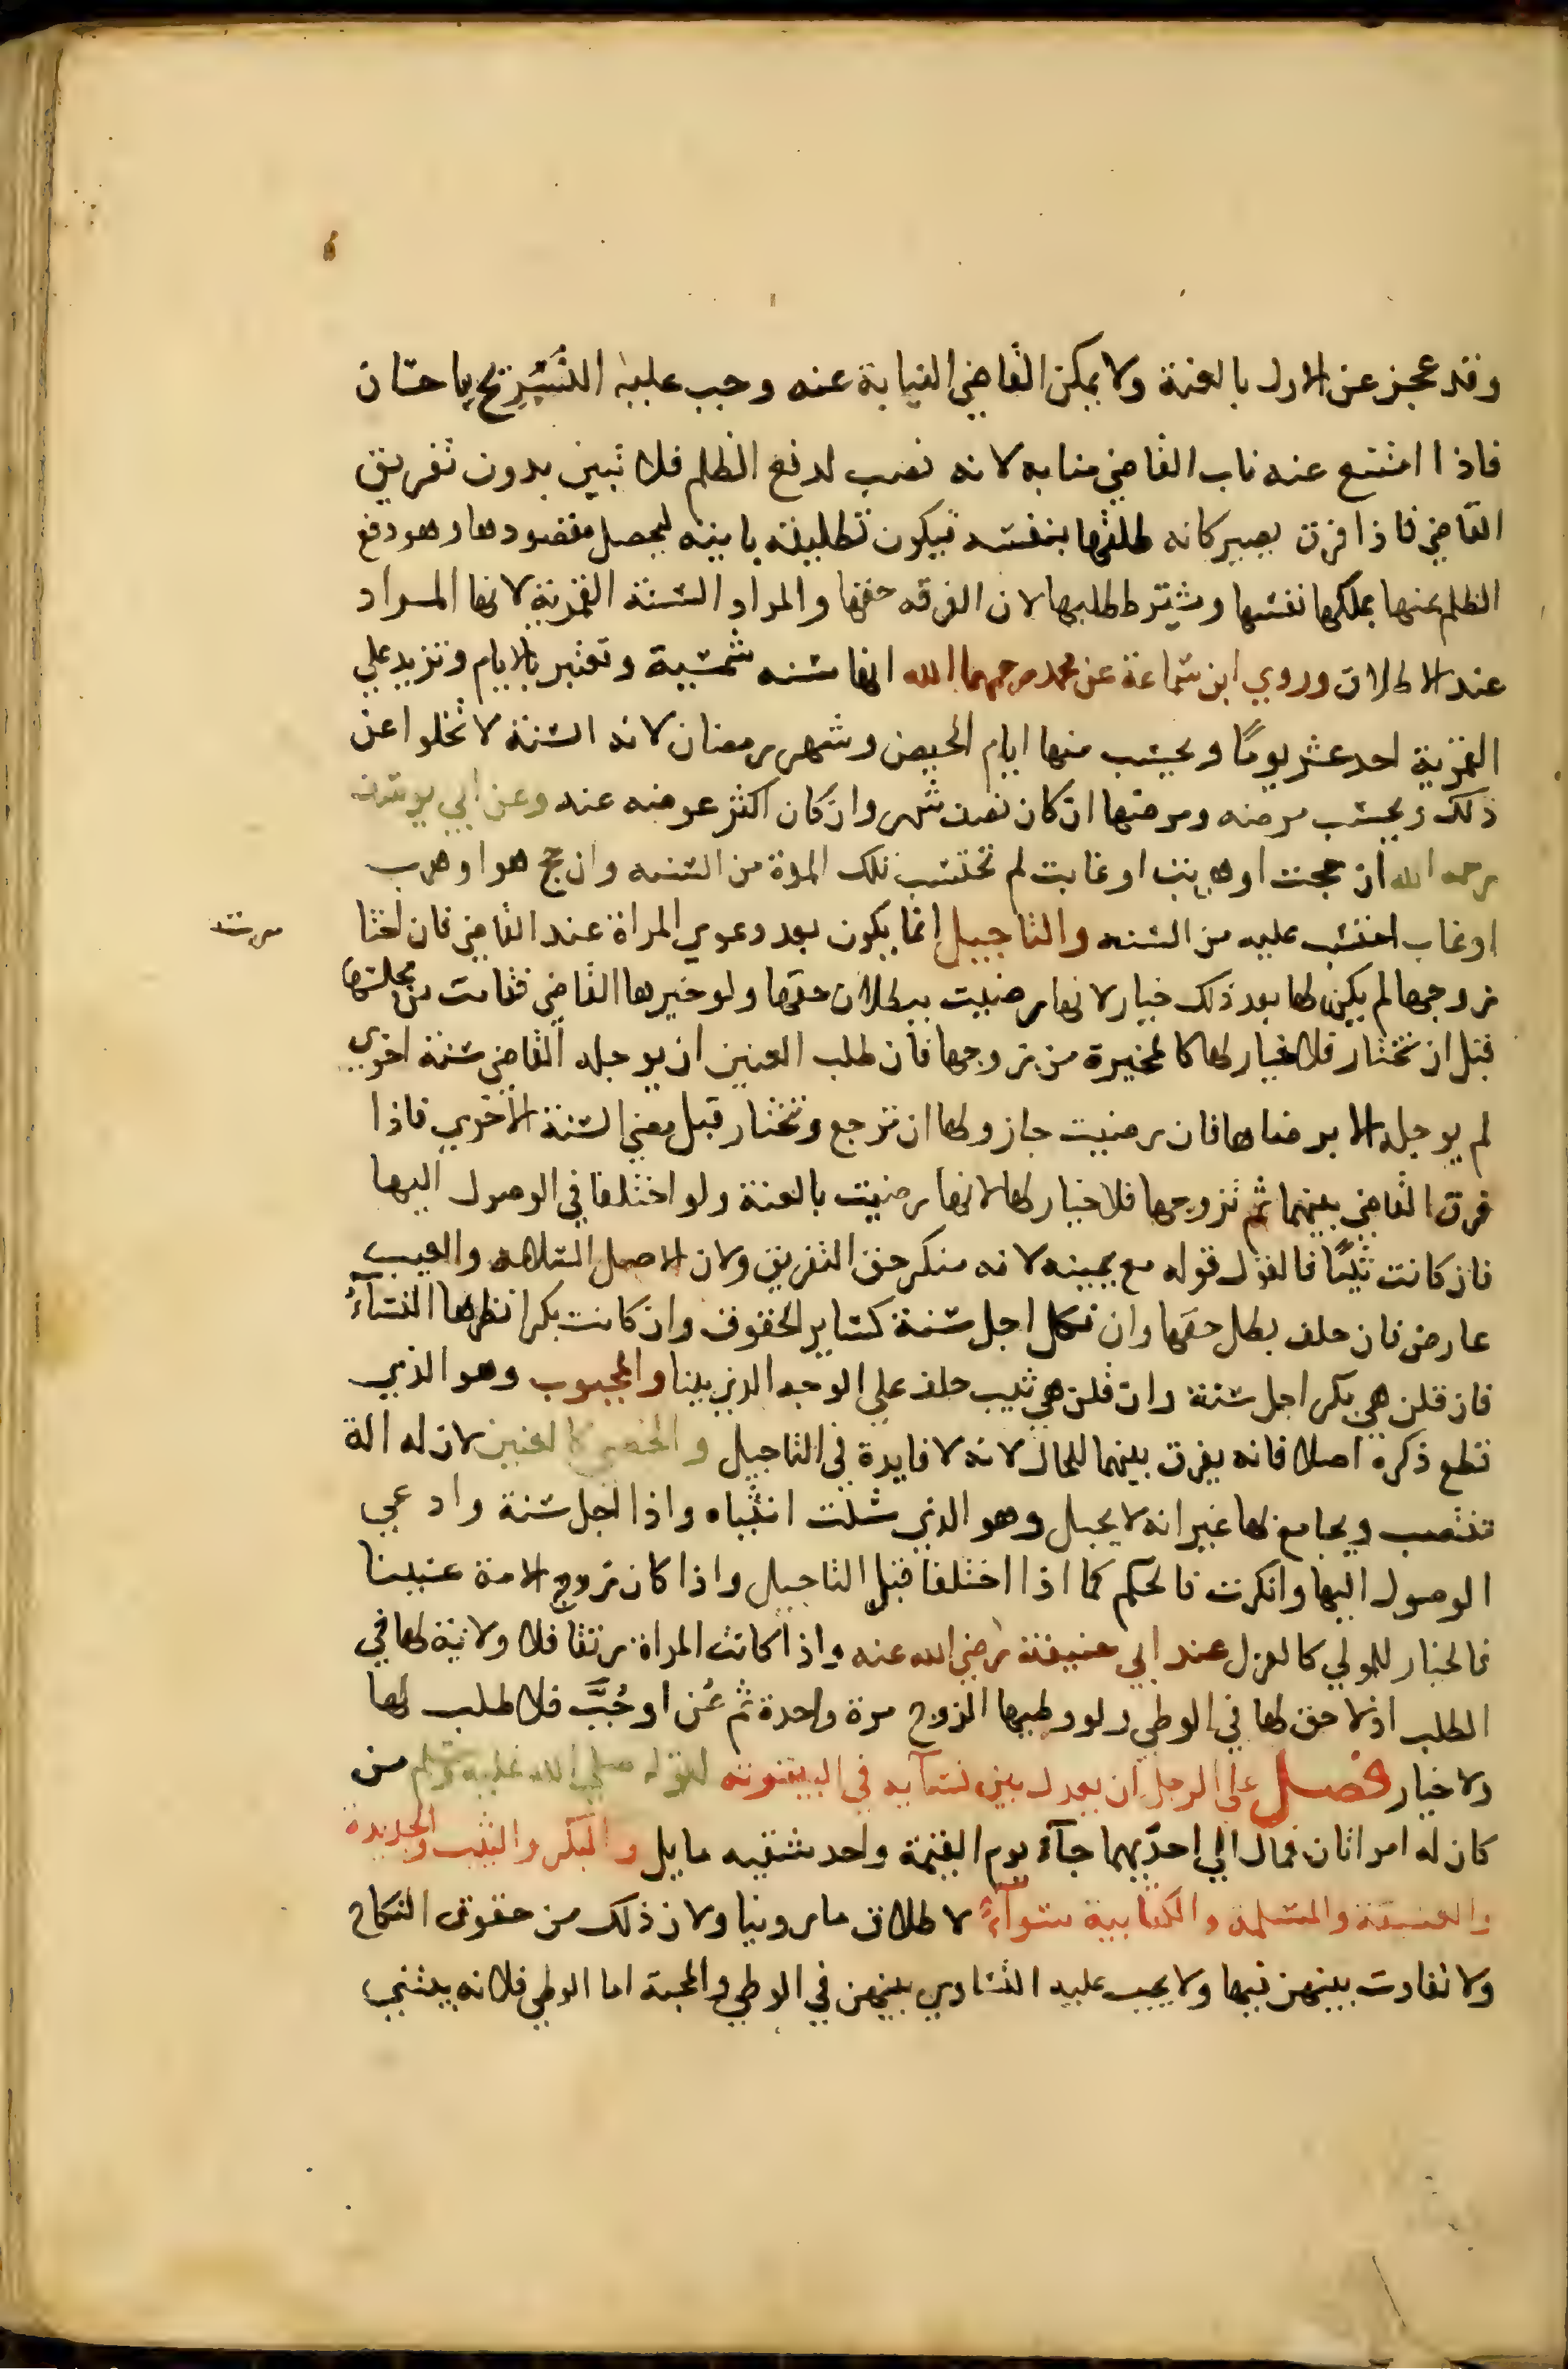 وقد عجز عن الاول بالعنة ولا يمكن القاضي النيابة عنه وجب عليه التسريح باحسان
فاذا امتنع عنه ناب القاضي منابه لانه نصب لدفع الظلم فلا تبين بدون تفريق
القاضي فاذا فرق يصير كانه طلقها بنفسه فيكون تطليقة باينه ليحصل مقصودها وهو دفع
الظلم عنها بملكها نفسها ويشترط طلبها لان الفرقه حقها والمراد السنة القمرية لانها المراد
عند الاطلاق وروي ابن سماعة عن محمد رحمهما الله انها سنه شمسية وتعتبر بالايام وتزيد علي
القمرية احد عشر يوما ويحتسب منها ايام الحيض وشهر رمضان لانه السنة لا تخلوا عن
ذلك ويحتسب مرضه ومرضها ان كان نصف شهر وان كان اكثر عوضه عنه وعن ابي يوسف
رحمه الله ان حجت او هربت او غابت لم تحتسب تلك المدة من السنه وان حج هو او هرب
او غاب احتسب عليه من السنه والتاجيل انما يكون بعد دعوي المراة عند القاضي فان اختا
زوجها لم يكن لها بعد ذلك خيار لانها رضيت ببطلان حقها ولو خيرها القاضي فقامت من مجلسها
قبل ان تختار فلا خيار لها كالمخيرة من زوجها فان طلب العنين ان يوجله القاضي سنة اخري
لم يوجله الا برضاها فان رضيت جاز ولها ان ترجع وتختار قبل مضي السنة الاخري فاذا
فرق القاضي بينهما ثم تزوجها فلا خيار لها لانها رضيت بالعنة ولو اختلفا في الوصول اليها
فان كانت ثيبا فالقول قوله مع يمينه لانه منكر حق التفريق ولان الاصل السلامه والعيب
عارض فان حلف بطل حقها وان نكل اجل سنة كساير الحقوق وان كانت بكرا نظرها النسآء
فان قلن هي بكر اجل سنة وان قلن هي ثيب حلف علي الوجه الذي بينا والمجبوب وهو الذي
قطع ذكره اصلا فانه يفرق بينهما للحال لانه لا فايدة في التاجيل والخصي كالعنين لان له الة
تنتصب ويجامع بها غير انه لا يحبل وهو الذي سلت انثياه واذا اجل سنة وادعي
الوصول اليها وانكرت فالحكم كما اذا اختلفا قبل التاجيل واذا كان زوج الامة عنينا
فالخيار للمولي كالعزل عند ابي حنيفة رضي الله عنه واذا كانت المراة رتقا فلا ولاية لها في
الطلب اذ لا حق لها في الوطي ولو وطيها الزوج مرة واحدة ثم عُن او جُبَّ فلا طلب لها
ولا خيار فصل علي الرجل ان يعدل بين نسآيه في البيتوتة لقوله صلي الله عليه وسلم من
كان له امراتان فمال الي احديهما جآء يوم القيمة واحد شقيه مايل والبكر والثيب والجديدة
والعتيقة والمسلمة والكتابية سوآء لاطلاق ما روينا ولان ذلك من حقوق النكاح
ولا تفاوت بينهن فيها ولا يجب عليه التساوي بينهن في الوطي والمحبة اما الوطي فلانه يبتني